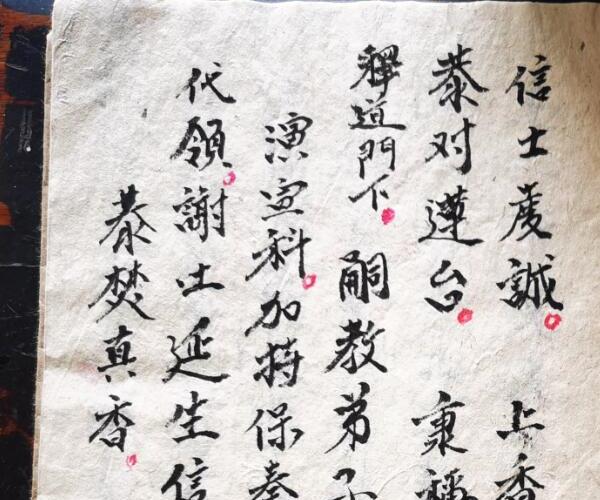 信士虔誠 上香
恭对蓮台 秉稱
釋道門下 嗣教弟子
演宣科加持保奏
代領謝土延生信
恭焚真香